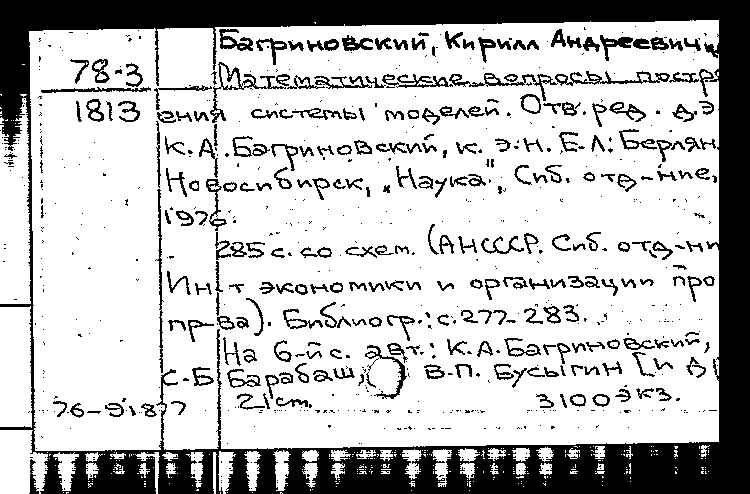 Багриновский, Кирилл Андреевич и
78-3 Математические вопросы постро
1813 ения системы моделей. Отв. ред. д.э
К.А.Багриновский, к.э.н. Е.Л. Берлян
Новосибирск, „Наука", Сиб. отд-ние,
1976.
285 с. со схем. (АН СССР. Сиб. отд-ни
Ин-т экономики и организации про
пр-ва). Библиогр.: с.277-283.
На 6-й с. авт.: К.А.Багриновский,
С-Б Барабаш, В.П. Бусыгин [и др
76-91877 21 cm. 3100 экз.